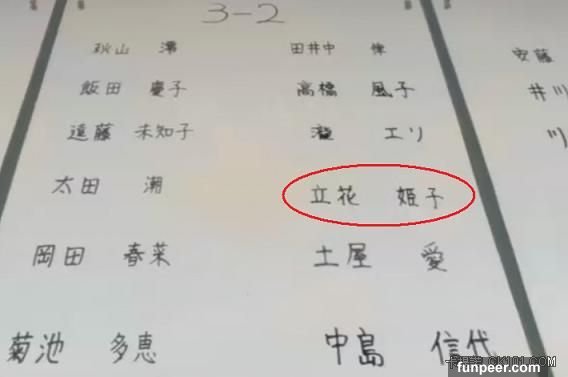 3-2
秋山 澪 田井中 律
飯田 慶子 高橋 風子
遠藤 未知子 瀧 エリ
太田 潮 立花 姫子
岡田 春菜 土屋 愛
菊池 多恵 中島 信代
安藤
井川
funpeer.com